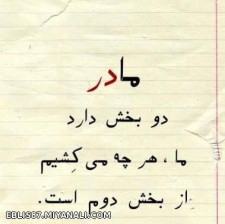 مادر
دو بخش دارد
ما ، هر چه می کِشیم
از بخش دوم است.
EBLIS67.MIYANALI.COM